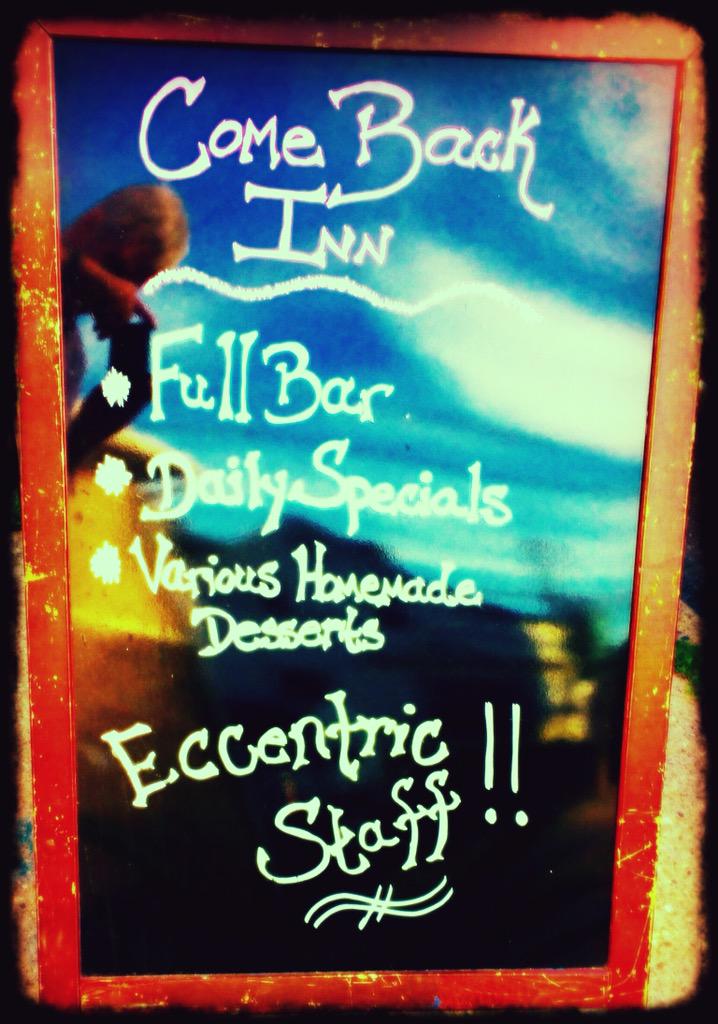 Come Back
Inn
Full Bar
Daily Specials
Various Homemade
Desserts
Eccentric
Staff!!